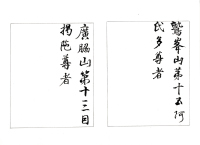 鷲峯山第十五阿
氏多尊者
廣脇山第十三因
揭陀尊者